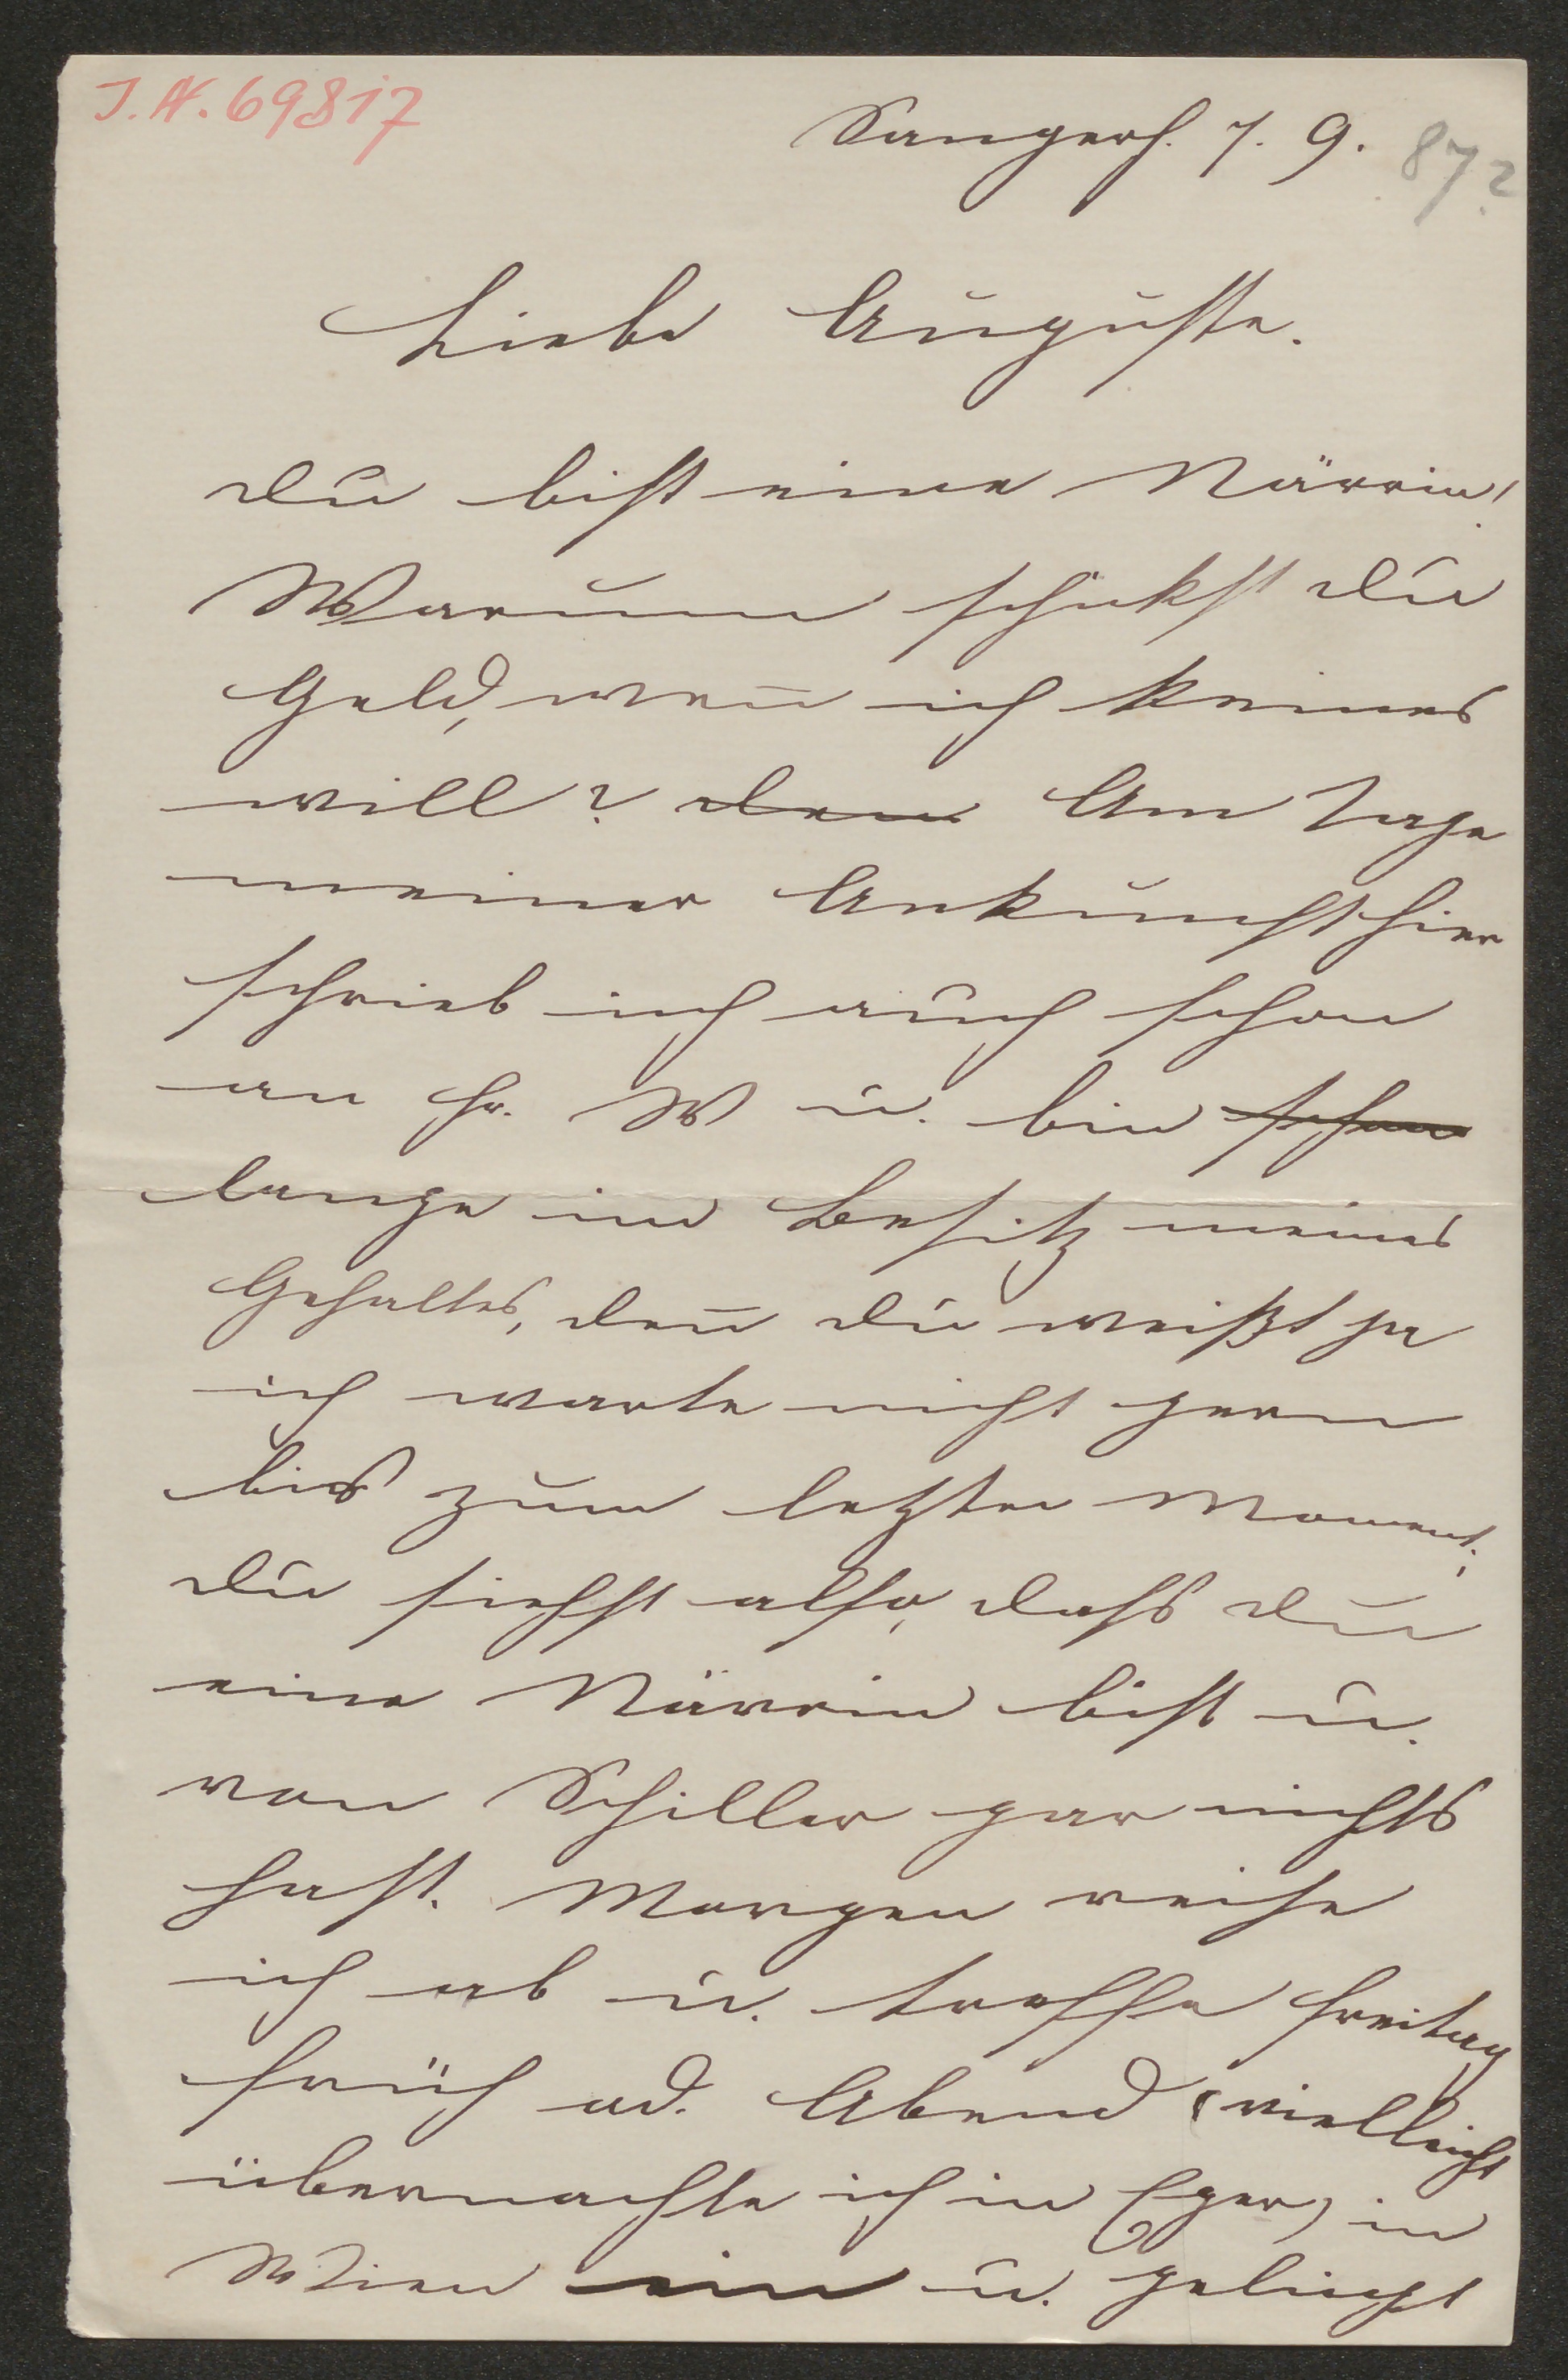 I.N. 69817
Sangerh. 7. 9. 87?
Liebe Auguste.
du bist eine Närrin!
Warum schickst du
Geld, weñ ich keines
will? den Am Tage
meiner Ankunft hier
schrieb ich auch schon
an Fr. W u. bin schon
lange im Besitz meines
Gehaltes, deñ du weißt ja
ich warte nicht gern
bis zum letzten Moment;
du siehst also, dass du
eine Närrin bist u.
von Schiller gar nichts
hast. Morgen reise
ich ab u. treffe Freitag
früh od. Abend (vielleicht
übernachte ich in Eger) in
Wien ein u. gelingt